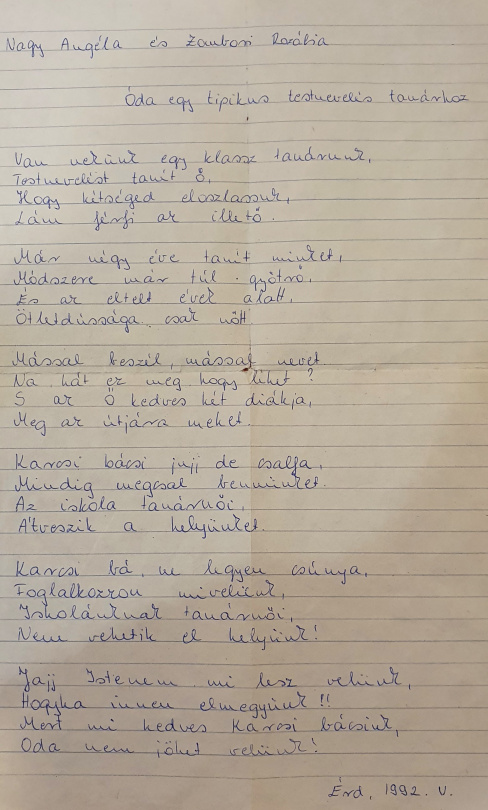 Nagy Angéla és Zombori Rozália
Óda egy tipikus testnevelés tanárhoz
Van nekünk egy klassz tanárunk,
Testnevelést tanít Ő,
Hogy kétséged eloszlassuk,
Lám férfi az illető.
Már négy éve tanít minket,
Módszere már túl gyötrő,
És az eltelt évek alatt,
Ötletdússága csak nőtt.
Mással beszél, mással nevet
Na hát ez meg hogy lehet?
S az Ő kedves két diákja,
Meg az útjára mehet.
Karcsi bácsi juji de csalfa,
Mindig megcsal bennünket.
Az iskola tanárnői,
Átveszik a helyünket.
Karcsi bá, ne legyen csúnya,
Foglalkozzon mivelünk,
Iskolánknak tanárnői,
Nem vehetik el helyünk!
Jajj Istenem mi lesz velünk,
Hogyha innen elmegyünk!!
Mert mi kedves Karcsi bácsink,
Oda nem jöhet velünk!
Érd, 1992. V.